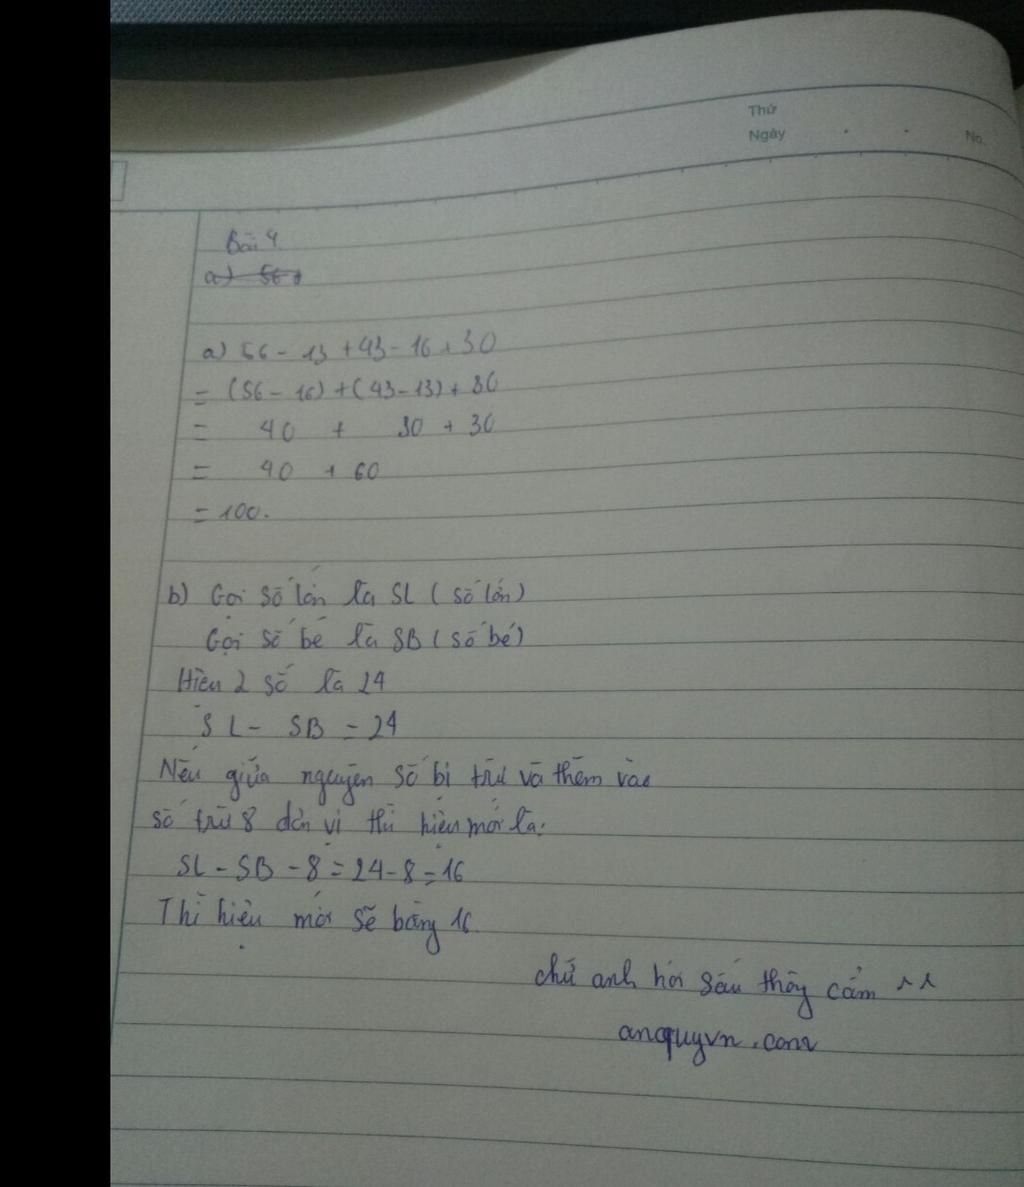 Thứ
Ngày
No.
Bài 4
a) 56
a) 56 - 13 + 43 - 16 + 30
= (56 - 16) + (43 - 13) + 30
= 40 + 30 + 30
= 40 + 60
= 100.
b) Gọi số lớn là SL (số lớn)
Gọi số bé là SB (số bé)
Hiệu 2 số là 24
SL - SB = 24
Nếu giữa nguyên số bị trừ và thêm vào
số trừ 8 đơn vị thì hiệu mới là:
SL - SB - 8 = 24 - 8 = 16
Thì hiệu mới sẽ bằng 16.
chữ anh hơi xấu thông cảm ^^
anquyvn.com